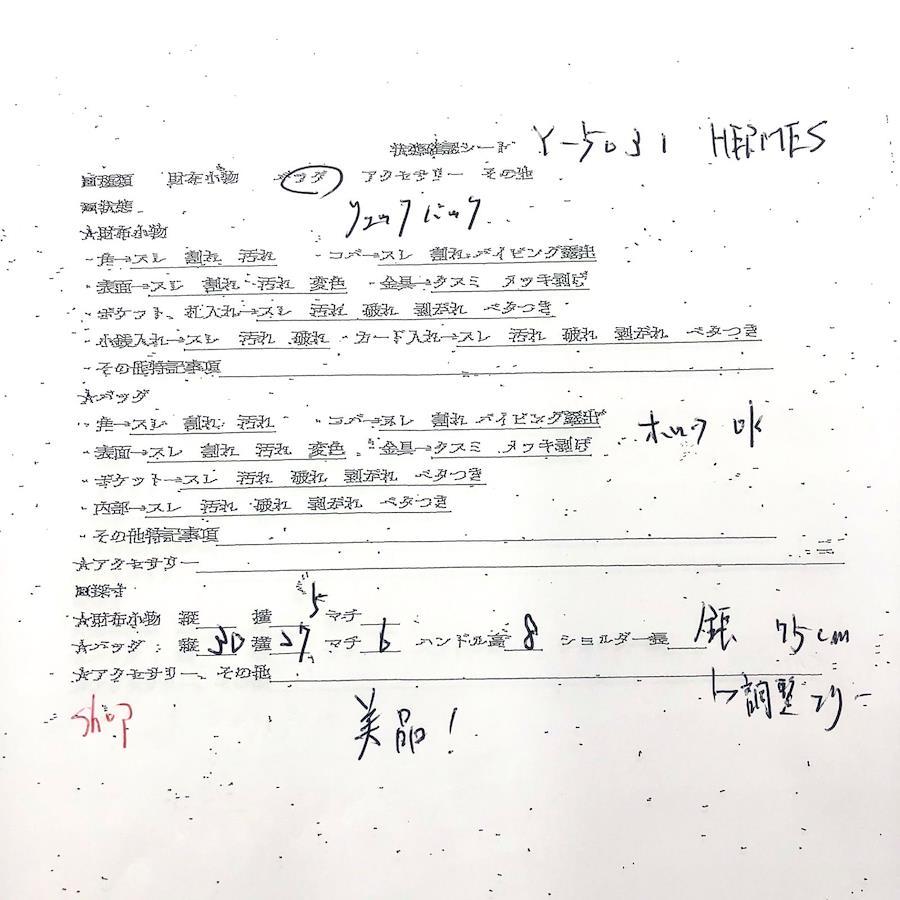 状態確認シート Y-5031 HERMES
■種類 財布小物 バッグ アクセサリー その他
■状態
リュックバック
★財布小物
・角→スレ 割れ 汚れ ・コバ→スレ 割れ パイピング露出
・表面→スレ 割れ 汚れ 変色 ・金具→クスミ メッキ剥げ
・ポケット、札入れ→スレ 汚れ 破れ 剥がれ ベタつき
・小銭入れ→スレ 汚れ 破れ ・カード入れ→スレ 汚れ 破れ 剥がれ ベタつき
・その他特記事項
★バッグ
・角→スレ 割れ 汚れ ・コバ→スレ 割れ パイピング露出
ホック OK
・表面→スレ 割れ 汚れ 変色 ・金具→クスミ メッキ剥げ
・ポケット→スレ 汚れ 破れ 剥がれ ベタつき
・内部→スレ 汚れ 破れ 剥がれ ベタつき
・その他特記事項
★アクセサリー
■採寸
★財布小物 縦 横 マチ
★バッグ: 縦 30 横 27.5 マチ 6 ハンドル高 8 ショルダー長 75cm
★アクセサリー、その他
↳調整フリー
shop
美品!